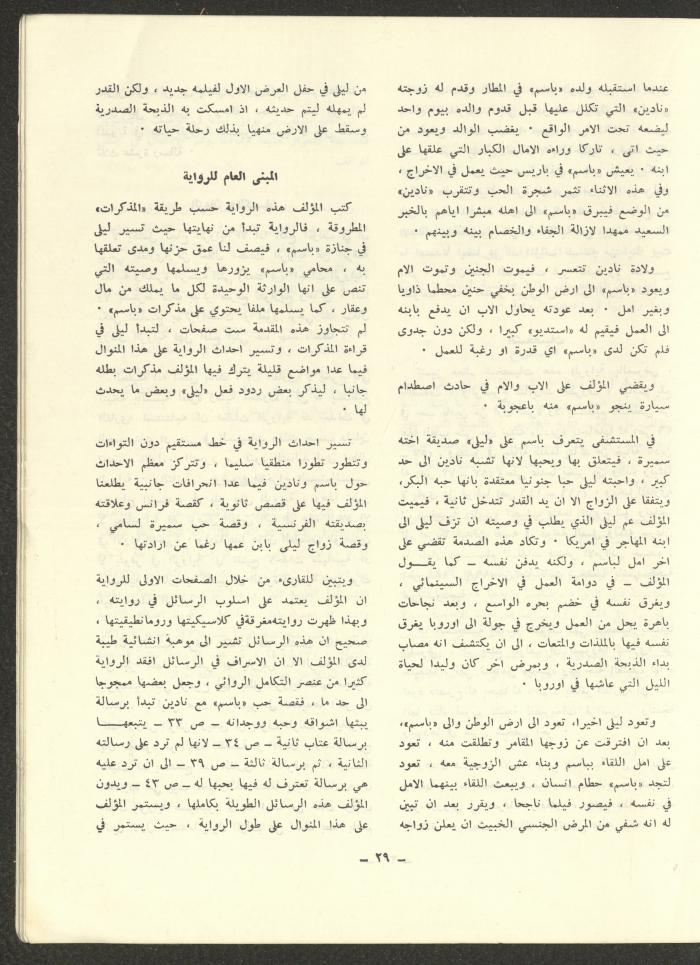 عندما استقبله ولده «باسم» في المطار وقدم له زوجته
«نادين» التي تكلل عليها قبل قدوم والده بيوم واحد
ليضعه تحت الامر الواقع · يغضب الوالد ويعود من
حيث اتى ، تاركا وراءه الامال الكبار التي علقها على
ابنه · يعيش «باسم» في باريس حيث يعمل في الاخراج ،
وفي هذه الاثناء تثمر شجرة الحب وتتقرب «نادين»
من الوضع فيبرق «باسم» الى اهله مبشرا اياهم بالخبر
السعيد ممهدا لازالة الجفاء والخصام بينه وبينهم ·
ولادة نادين تتعسر ، فيموت الجنين وتموت الام
ويعود «باسم» الى ارض الوطن بخفي حنين محطما ذاويا
وبغير امل · بعد عودته يحاول الاب ان يدفع بابنه
الى العمل فيقيم له «استديو» كبيرا ، ولكن دون جدوى
فلم تكن لدى «باسم» اي قدرة او رغبة للعمل ·
ويقضي المؤلف على الاب والام في حادث اصطدام
سيارة ينجو «باسم» منه باعجوبة ·
في المستشفى يتعرف باسم على «ليلى» صديقة اخته
سميرة ، فيتعلق بها ويحبها لانها تشبه نادين الى حد
كبير ، واحبته ليلى حبا جنونيا معتقدة بانها حبه البكر،
ويتفقا على الزواج الا ان يد القدر تتدخل ثانية ، فيميت
المؤلف عم ليلى الذي يطلب في وصيته ان تزف ليلى الى
ابنه المهاجر في امريكا · وتكاد هذه الصدمة تقضي على
اخر امل لباسم ، ولكنه يدفن نفسه — كما يقـــول
المؤلف — في دوامة العمل في الاخراج السينمائي ،
ويغرق نفسه في خضم بحره الواسع ، وبعد نجاحات
باهرة يحل من العمل ويخرج في جولة الى اوروبا يغرق
نفسه فيها بالملذات والمتعات ، الى ان يكتشف انه مصاب
بداء الذبحة الصدرية ، وبمرض اخر كان وليدا لحياة
الليل التي عاشها في اوروبا ·
وتعود ليلى اخيرا، تعود الى ارض الوطن والى «باسم»،
بعد ان افترقت عن زوجها المقامر وتطلقت منه ، تعود
على امل اللقاء بباسم وبناء عش الزوجية معه ، تعود
لتجد «باسم» حطام انسان ، ويبعث اللقاء بينهما الامل
في نفسه ، فيصور فيلما ناجحا ، ويقرر بعد ان تبين
له انه شفي من المرض الجنسي الخبيث ان يعلن زواجه
من ليلى في حفل العرض الاول لفيلمه جديد ، ولكن القدر
لم يمهله ليتم حديثه ، اذ امسكت به الذبحة الصدرية
وسقط على الارض منهيا بذلك رحلة حياته ·
المبنى العام للرواية
كتب المؤلف هذه الرواية حسب طريقة «المذكرات»
المطروقة ، فالرواية تبدأ من نهايتها حيث تسير ليلى
في جنازة «باسم» ، فيصف لنا عمق حزنها ومدى تعلقها
به ، محامي «باسم» يزورها ويسلمها وصيته التي
تنص على انها الوارثة الوحيدة لكل ما يملك من مال
وعقار ، كما يسلمها ملفا يحتوي على مذكرات «باسم» ·
لم تتجاوز هذه المقدمة ست صفحات ، لتبدأ ليلى في
قراءة المذكرات ، وتسير احداث الرواية على هذا المنوال
فيما عدا مواضع قليلة يترك فيها المؤلف مذكرات بطله
جانبا ، ليذكر بعض ردود فعل «ليلى» وبعض ما يحدث
لها ·
تسير احداث الرواية في خط مستقيم دون التواءات
وتتطور تطورا منطقيا سليما ، وتتركز معظم الاحداث
حول باسم ونادين فيما عدا انحرافات جانبية يطلعنا
المؤلف فيها على قصص ثانوية ، كقصة فرانس وعلاقته
بصديقته الفرنسية ، وقصة حب سميرة لسامي ،
وقصة زواج ليلى بابن عمها رغما عن ارادتها ·
ويتبين للقارىء من خلال الصفحات الاولى للرواية
ان المؤلف يعتمد على اسلوب الرسائل في روايته ،
وبهذا ظهرت روايته مغرقة في كلاسيكيتها ورومانطيقيتها ،
صحيح ان هذه الرسائل تشير الى موهبة انشائية طيبة
لدى المؤلف الا ان الاسراف في الرسائل افقد الرواية
كثيرا من عنصر التكامل الروائي ، وجعل بعضها ممجوجا
الى حد ما ، فقصة حب «باسم» مع نادين تبدأ برسالة
يبثها اشواقه وحبه ووجدانه — ص ٢٣ — يتبعهـــا
برسالة عتاب ثانية — ص ٣٤ — لانها لم ترد على رسالته
الثانية ، ثم برسالة ثالثة — ص ٣٩ — الى ان ترد عليه
هي برسالة تعترف له فيها بحبها له — ص ٤٣ — ويدون
المؤلف هذه الرسائل الطويلة بكاملها ، ويستمر المؤلف
على هذا المنوال على طول الرواية ، حيث يستمر في
— ٢٩ —